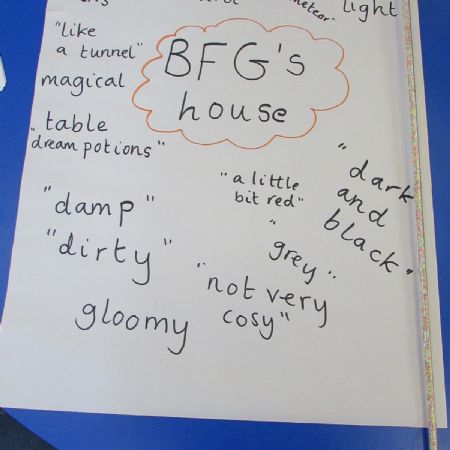 meteor"
light
"like
a tunnel"
magical
BFG's
house
"table
dream potions"
"a little
bit red"
"dark
and
black"
"damp"
"dirty"
"grey"
"not very
cosy"
gloomy